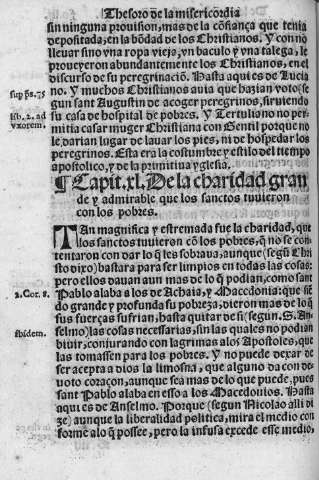 Thesoro de la misericordia
sin ninguna prouision, mas de la cõfiança que tenia
depositada, en la bõdad de los Christianos. Y con no
lleuar sino vna ropa vieja, vn baculo y vna talega, le
proueyeron abundantemente los Christianos, en el
discurso de su peregrinació. Hasta aqui es de Lucia
no. Y muchos Christianos auia que hazian voto (se
sup ps. 75
gun sant Augustin de acoger peregrinos, siruiendo
su casa de hospital de pobres. Y Tertuliano no per-
lib. 2. ad
vxorem.
mitia casar muger Christiana con Gentil porque no
le, darian lugar de lauar los pies, ni de hospedar los
peregrinos. Esta era la costumbre y estilo del tiempo
apostolico, y de la primitiua yglesia.
¶ Capit. xl. De la charidad gran
de y admirable que los sanctos tuuieron
con los pobres.
TAn magnifica y estremada fue la charidad, que
los sanctos tuuieron cõ los pobres, q̃ no se con-
tentaron con dar lo q̃ les sobraua, aunque (segũ Chri
sto dixo) bastara para ser limpios en todas las cosas:
pero ellos dauan aun mas de lo q̃ podian, como sant
2. Cor. 8.
Pablo alaba a los de Achaia, y Macedonia: que siẽ
do grande y profunda su pobreza, dieron mas de lo q̃
sus fuerças sufrian, hasta quitar de si (segun. S. An-
ibidem.
selmo) las cosas necessarias, sin las quales no podian
biuir, conjurando con lagrimas alos Apostoles, que
las tomassen para los pobres. Y no puede dexar de
ser acepta a dios la limosna, que alguno da con de-
uoto coraçon, aunque sea mas de lo que puede, pues
sant Pablo alaba en esso a los Macedonios. Hasta
aqui es de Anselmo. Porque (segun Nicolao alli di
ze) aunque la liberalidad politica, mira el medio con
forme alo q̃ possee, pero la infusa excede esse medio,